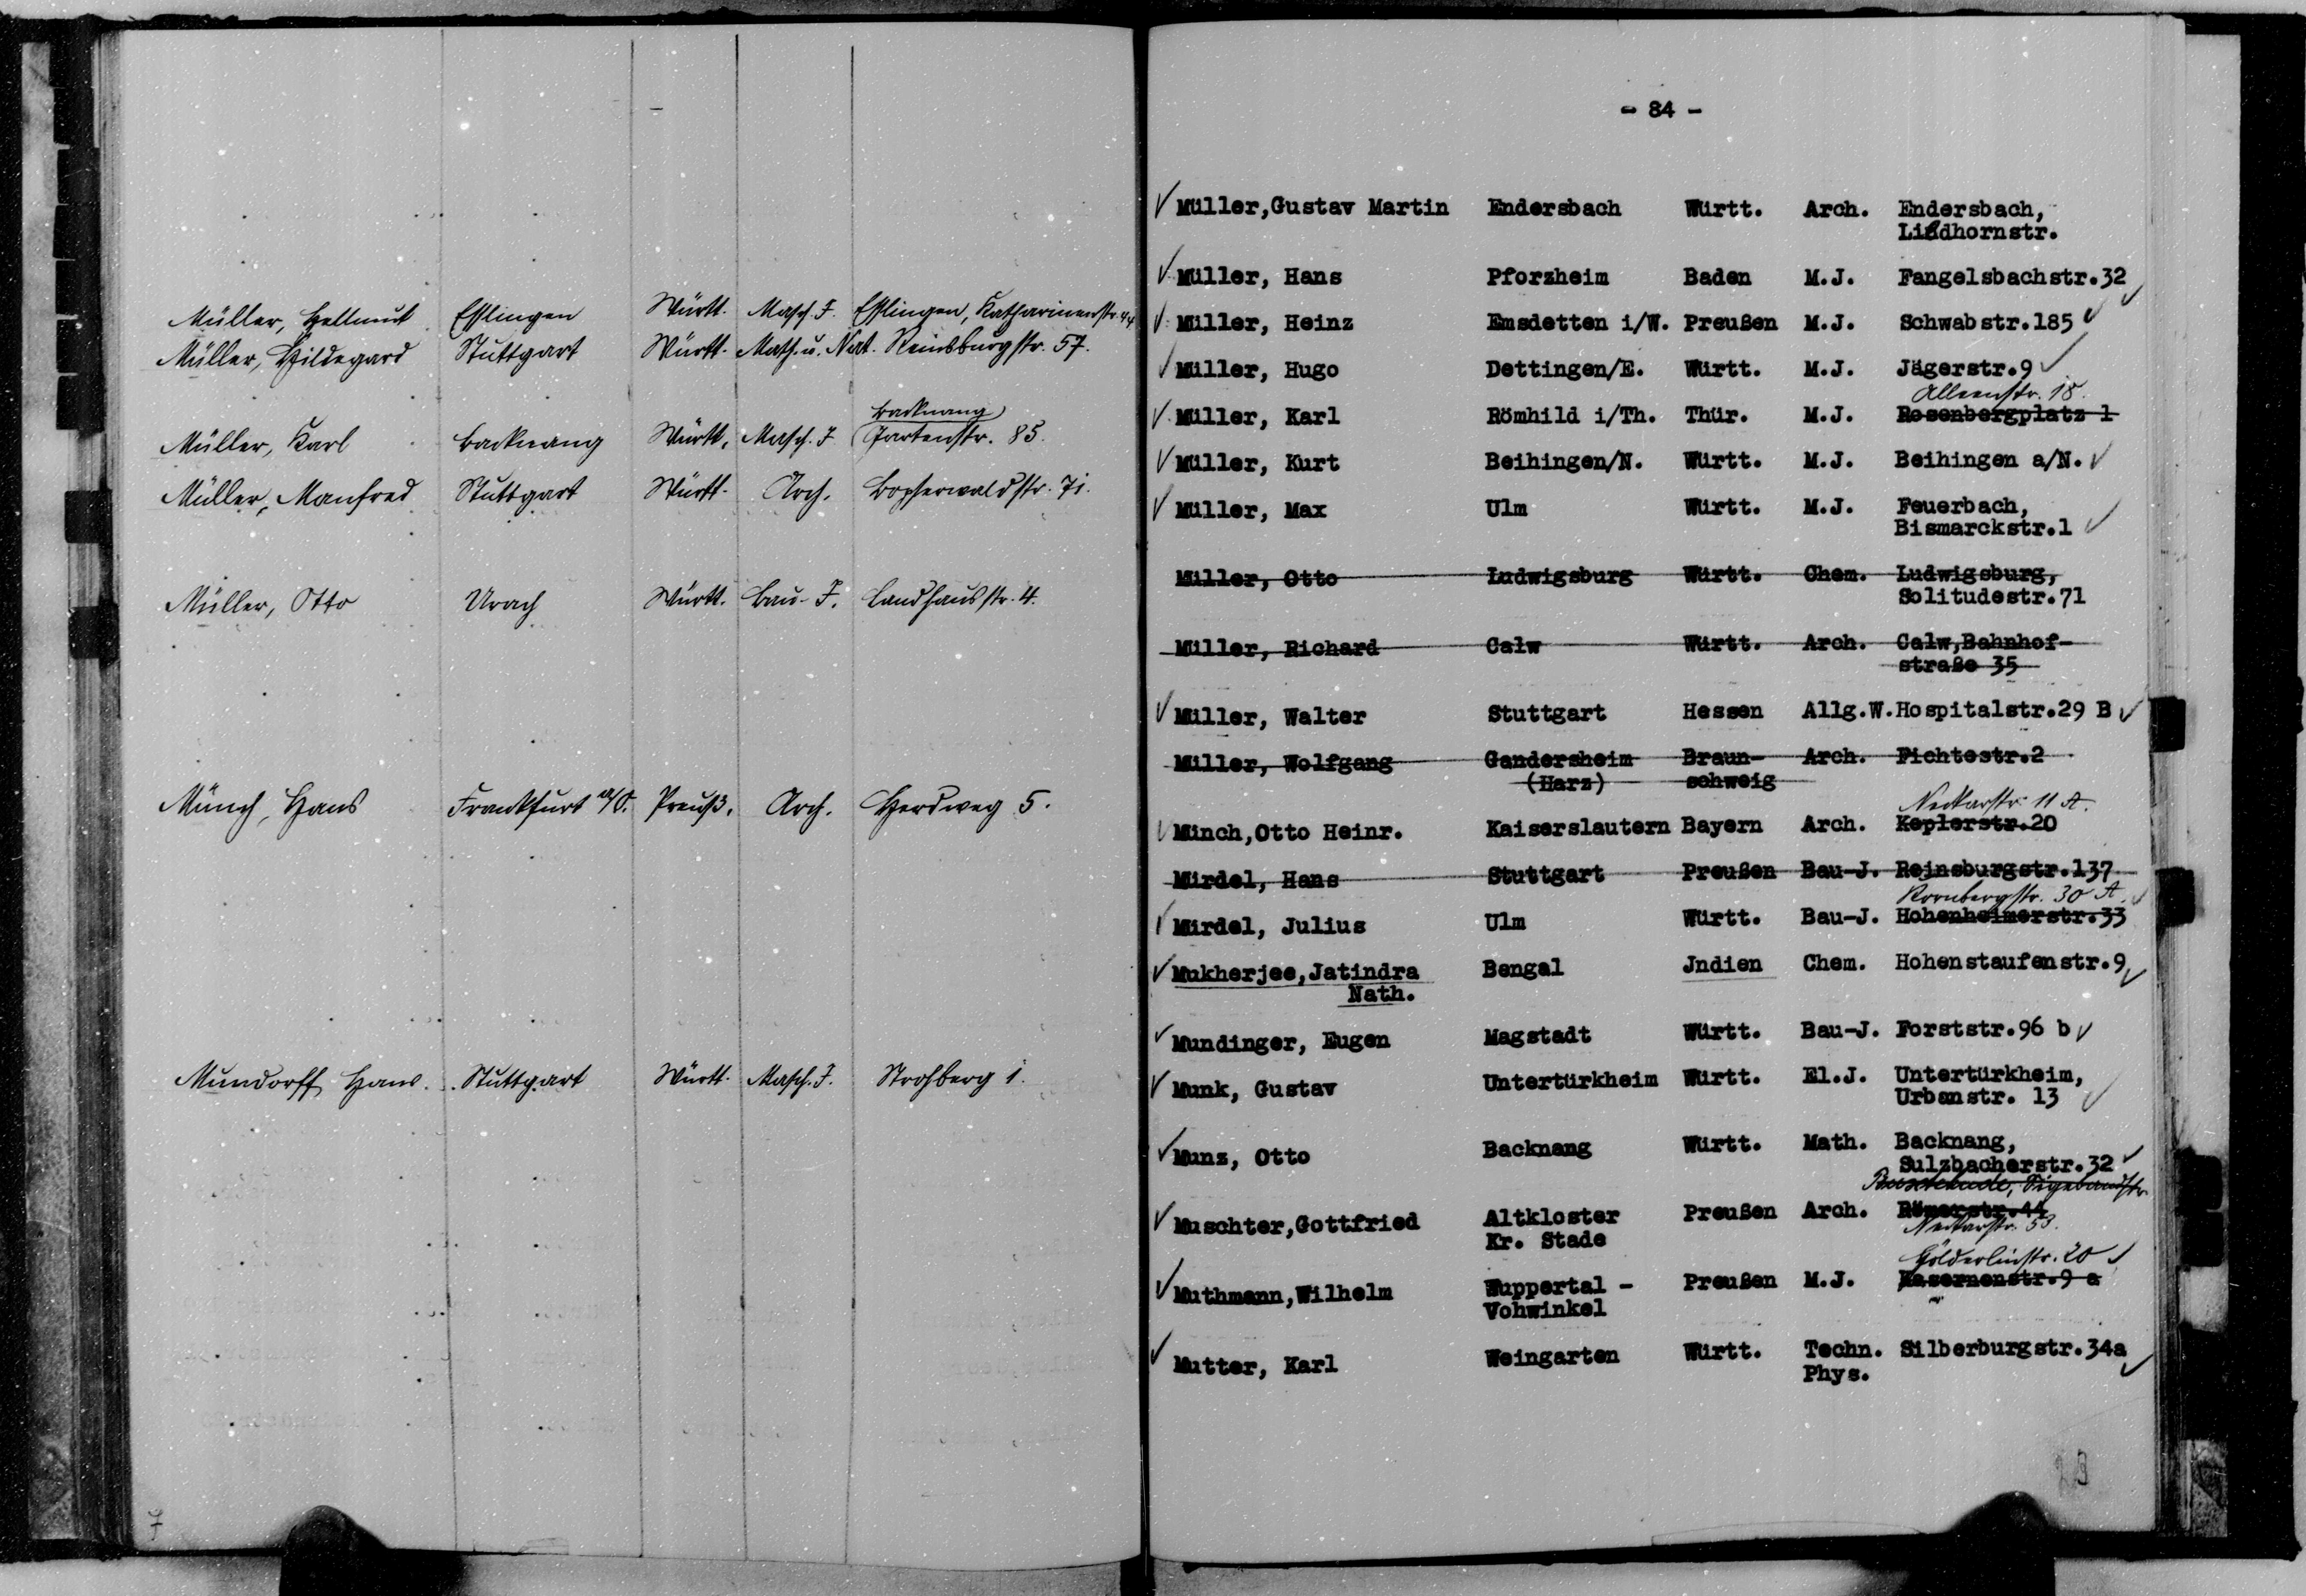 Müller, Hellmut Esslingen Württ. Masch. I. Esslingen, Katharinenstr. 44
Müller, Hildegard Stuttgart Württ. Math. u. Nat. Reinsburgstr. 57.
Backnang
Müller, Karl Backnang Württ. Masch. I. Gartenstr. 85.
Müller, Manfred Stuttgart Württ. Arch. Bopserwaldstr. 71.
Müller, Otto Urach Württ. Bau-I. Landhausstr. 4.
Münch, Hans Frankfurt a/O. Preuß. Arch. Herdweg 5.
Mundorff Hans. Stuttgart Württ. Masch. I. Strohberg 1.
7
- 84 -
Müller,Gustav Martin Endersbach Württ. Arch. Endersbach,
Lindhornstr.
Müller, Hans Pforzheim Baden M.J. Fangelsbachstr.32
Müller, Heinz Emsdetten i/W. Preußen M.J. Schwabstr.185
Müller, Hugo Dettingen/E. Württ. M.J. Jägerstr.9
Alleenstr. 18.
Müller, Karl Römhild i/Th. Thür. M.J. Rosenbergplatz 1
Müller, Kurt Beihingen/N. Württ. M.J. Beihingen a/N.
Müller, Max Ulm Württ. M.J. Feuerbach,
Bismarckstr.1
Müller, Otto Ludwigsburg Württ. Chem. Ludwigsburg,
Solitudestr.71
Müller, Richard Calw Württ. Arch. Calw,Bahnhof-
straße 35
Müller, Walter Stuttgart Hessen Allg.W. Hospitalstr.29 B
Müller, Wolfgang Gandersheim Braun- Arch. Fichtestr.2
(Harz) schweig
Neckarstr. 11 A.
Münch,Otto Heinr. Kaiserslautern Bayern Arch. Keplerstr.20
Mürdel, Hans Stuttgart Preußen Bau-J. Reinsburgstr.137
Rornbergstr. 30 A.
Mürdel, Julius Ulm Württ. Bau-J. Hohenheimerstr.33
Mukherjee,Jatindra Bengal Jndien Chem. Hohenstaufenstr.9
Nath.
Mundinger, Eugen Magstadt Württ. Bau-J. Forststr.96 b
Munk, Gustav Untertürkheim Württ. El.J. Untertürkheim,
Urbanstr. 13
Munz, Otto Backnang Württ. Math. Backnang,
Sulzbacherstr.32
Buxtehude, Sigebandstr.
Muschter,Gottfried Altkloster Preußen Arch. Römerstr.44
Kr. Stade Neckarstr. 53.
Hölderlinstr. 20
Muthmann,Wilhelm Wuppertal - Preußen M.J. Kasernenstr.9 a
Vohwinkel
Mutter, Karl Weingarten Württ. Techn. Silberburgstr.34a
Phys.